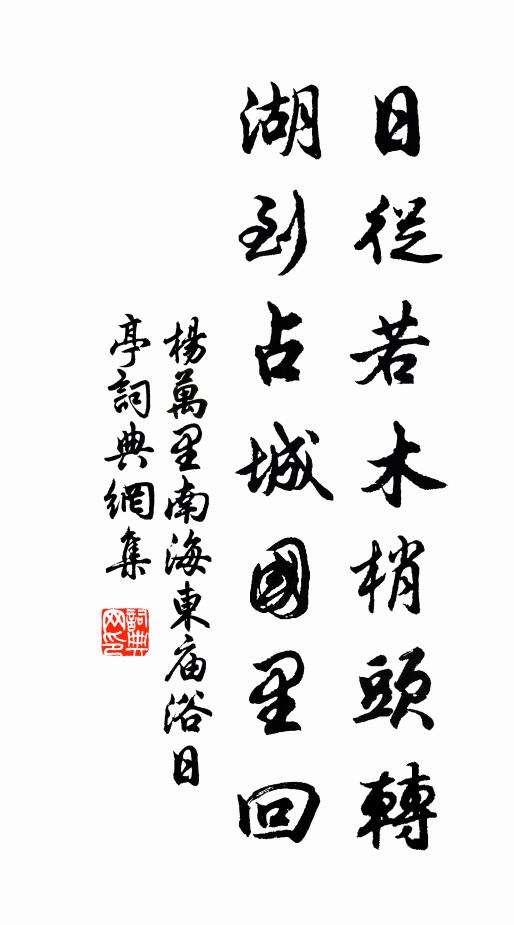 日從若木梢頭轉
湖到占城國里回
楊萬里南海東庙浴日
亭詞典網集
詞典
网印